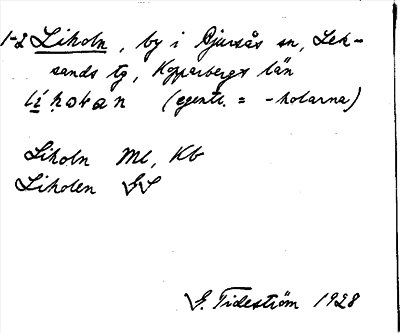 1-2 Liholn, by i Bjursås sn, Lek-
sands tg, Kopparbergs län
lí̱họtan (egentl. = -holarna)
Liholn Ml, Kb
Liholen GS
G. Tideström 1928